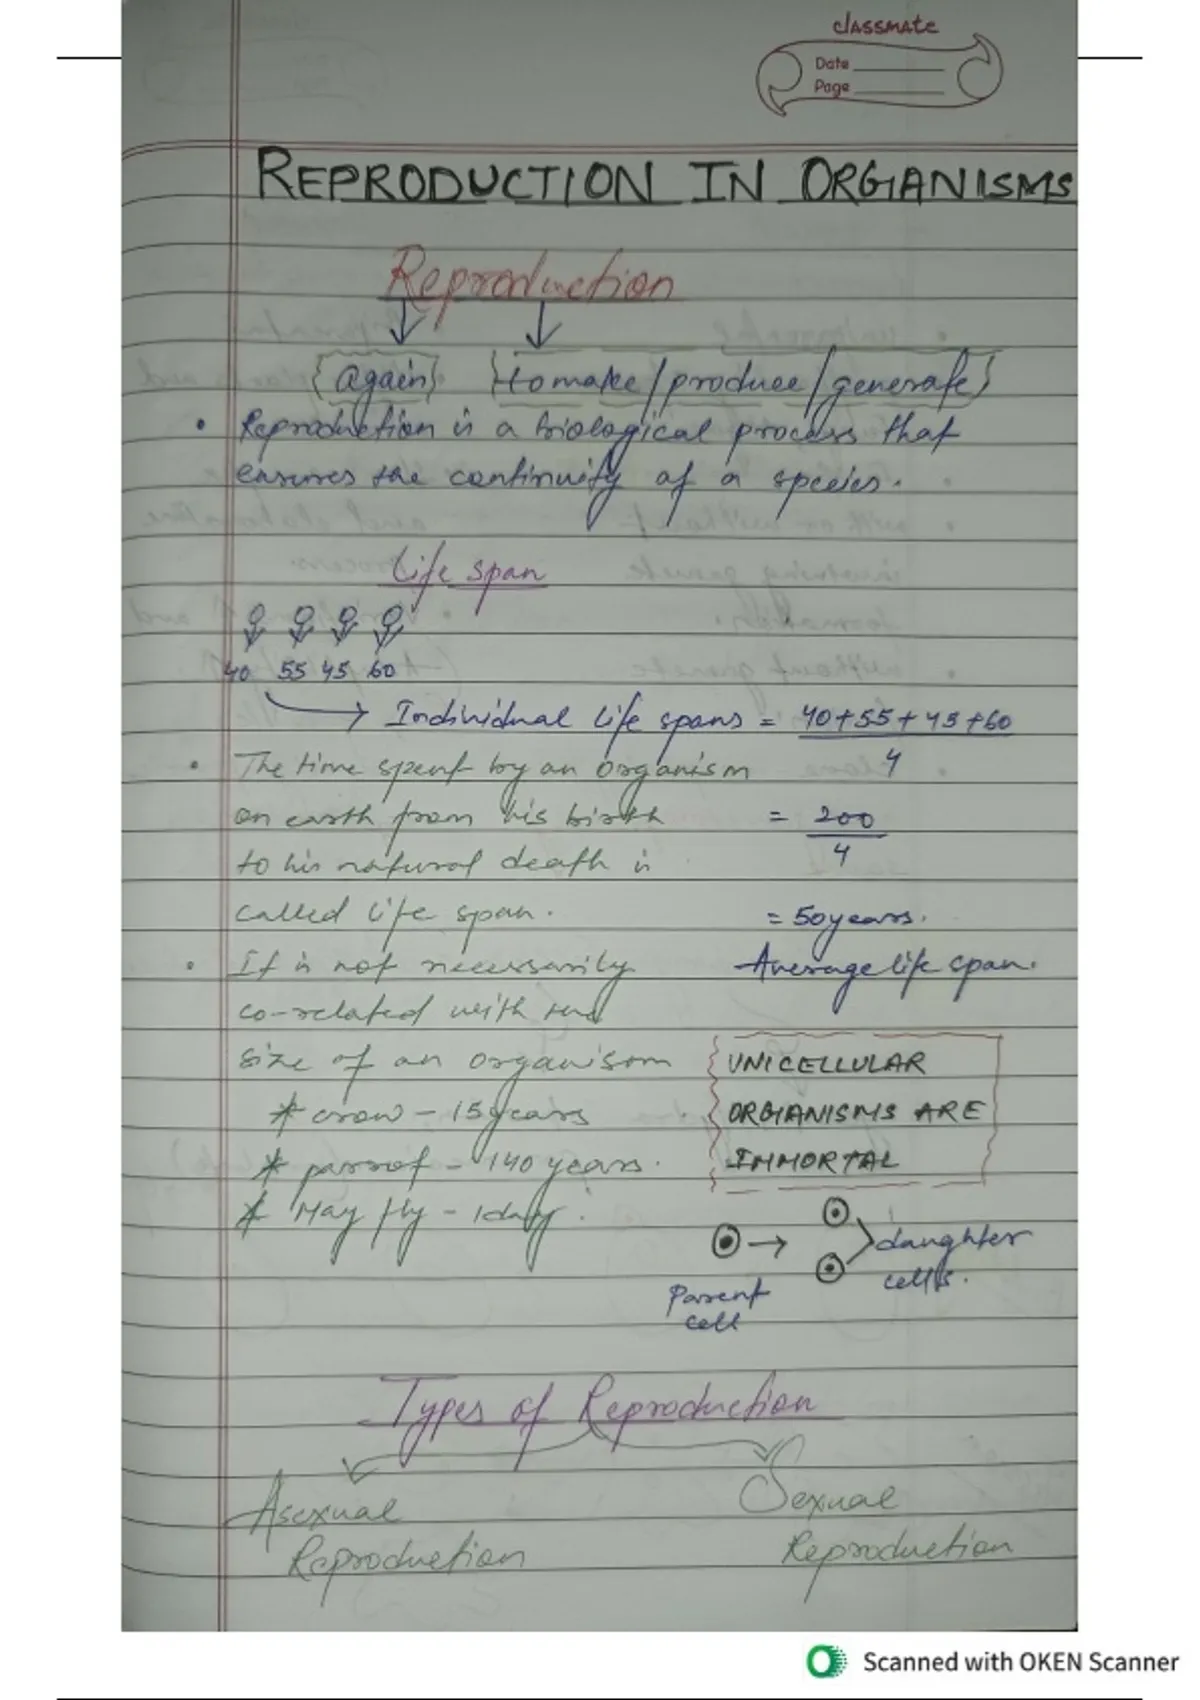 classmate
Date
Page
REPRODUCTION IN ORGIANISMS
Reproduction
{again} {to make/produce/generate}
• Reproduction is a biological process that
ensures the continuity of a species.
Life span
40 55 45 60
→ Individual life spans = 40+55+45+60
4
• The time spent by an organism
on earth from his birth = 200
4
to his natural death is
called life span. = 50 years.
• It is not necessarily Average life span.
co-related with the
size of an organisom
* crow - 15 years
* parrot - 140 years.
* May fly - 1 day.
UNICELLULAR
ORGIANISMS ARE
IMMORTAL
→ daughter
cells.
Parent
cell
Types of Reproduction
Asexual
Reproduction
Sexual
Reproduction
Scanned with OKEN Scanner